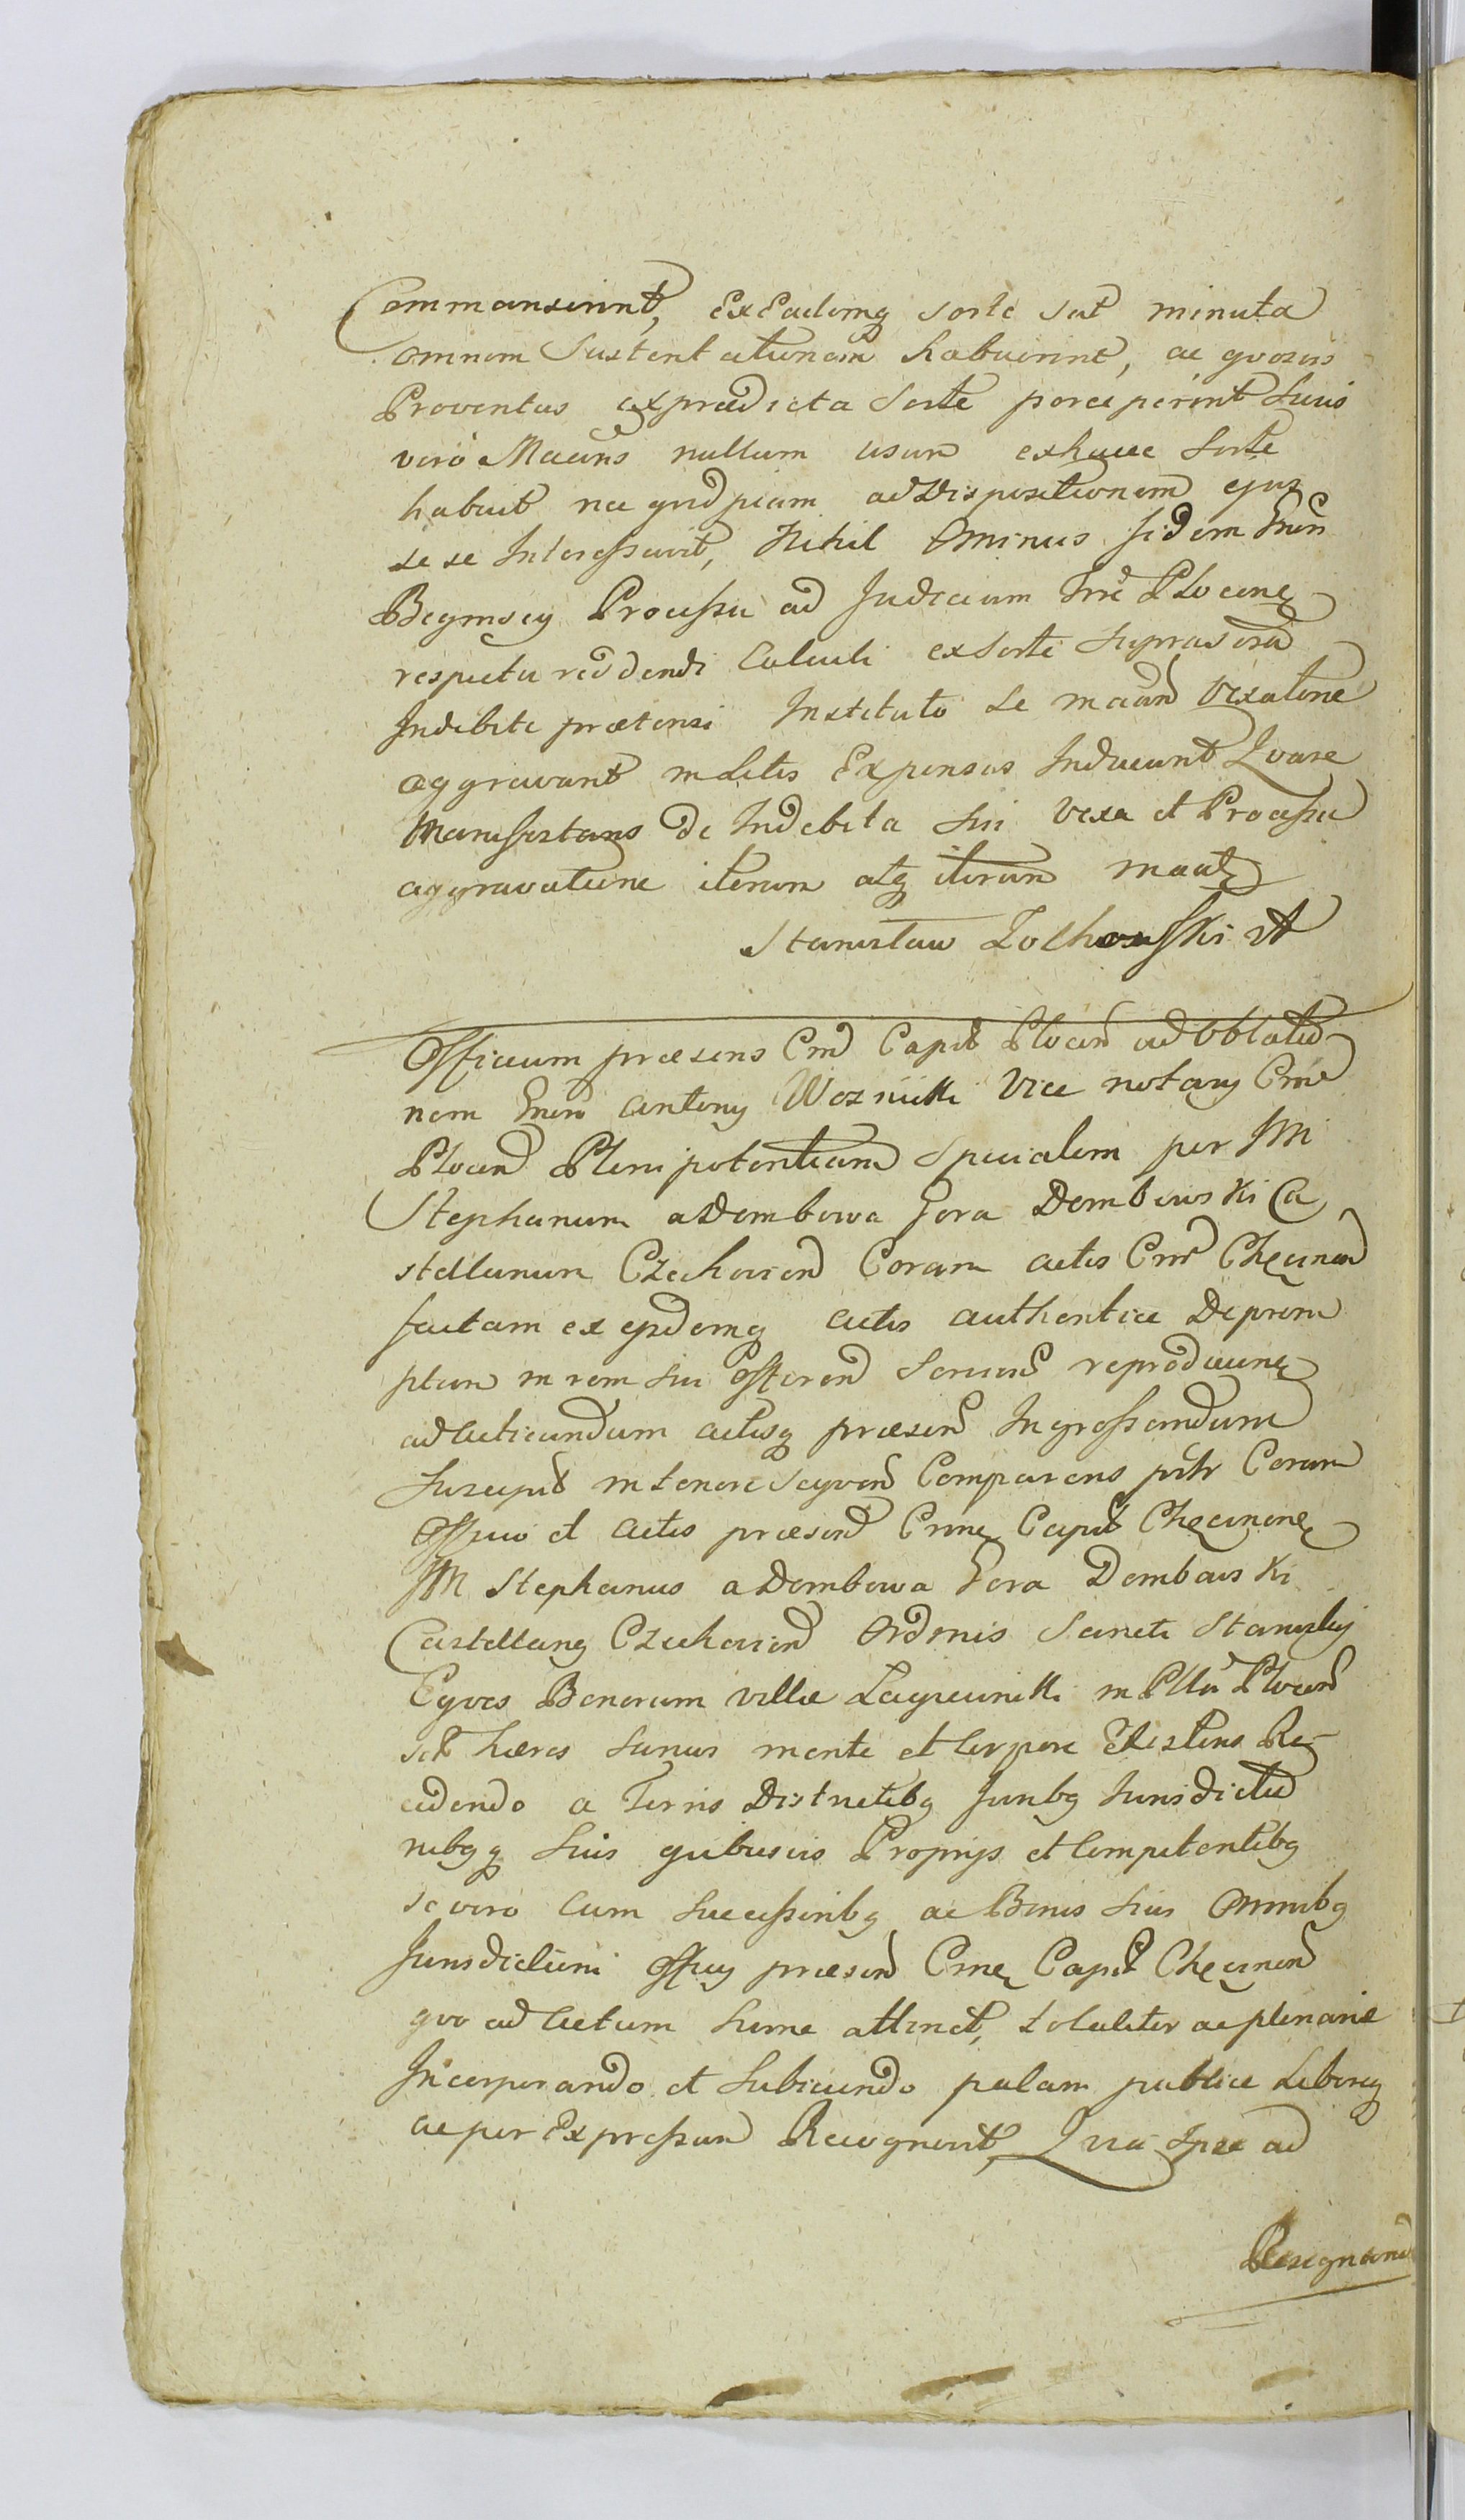 Commanserint, ex Eademq sorte sat minuta
omnem Sustentationem habuerint, ac quosvis
Proventus ex prædicta Sorte perceperint suis
vero Maans nullum usum ex hacce sorte
habuit nec quidpiam ad Dispositionem ejus
se se Interessavit, Nihil Ominus iidem Gnen
Processu ad Judicium Trre Plocen
respectu reddendi Calculi ex sorte suprascrá
Indebite prætensi Instituto se maan Vexatione
aggravant in Litis Expensas Inducunt Quare
Manifestans de Indebita sui Vexa et Processu
aggravatione iterum atq iterum maat
Stanisław

Officium præsens Cnd Capit Plocen ad Oblatio
nem Gnen Antony Woznicki Vice notary Crne
Plocen Plenipotentiam Specialem per JM
Stephanum a Dombowa Gora Dembowski Ca
stellanum Czechovien Coram actis Cnr Chęcinen
factam ex ejsdemq actis authentice Deprom
ptam in rem sui offeren reproducen
ad Acticandum actisq præsen Ingrossandum
suscepit in tenore seqven Comparens prtr Coram
Officio et Actis præsen Crne Capit Chęcinen
JM Stephanus a Dembowa Gora Dembowski
Castellanq Czechovien Ordinis Sancti Stanislai
Eqves Bonorum villæ in Pttu Plocen
sit hæres sanus mente et Corpore Existens Re-
cedendo a Terris Districtibq Juribq Jurisdictio
nibqq suis quibusvis Proprijs et Competentibq
se vero cum Successoribq ac Bonis suis Omnibq
Jurisdictioni Officy præsen Crne Capit Chęcinen
quo ad Actum hunc attinet, totaliter ac plenarie
Incorporando et Subiiciendo palam publice Libereq
ac per Expressum Recognovit, Quia Ipse ad

Designand